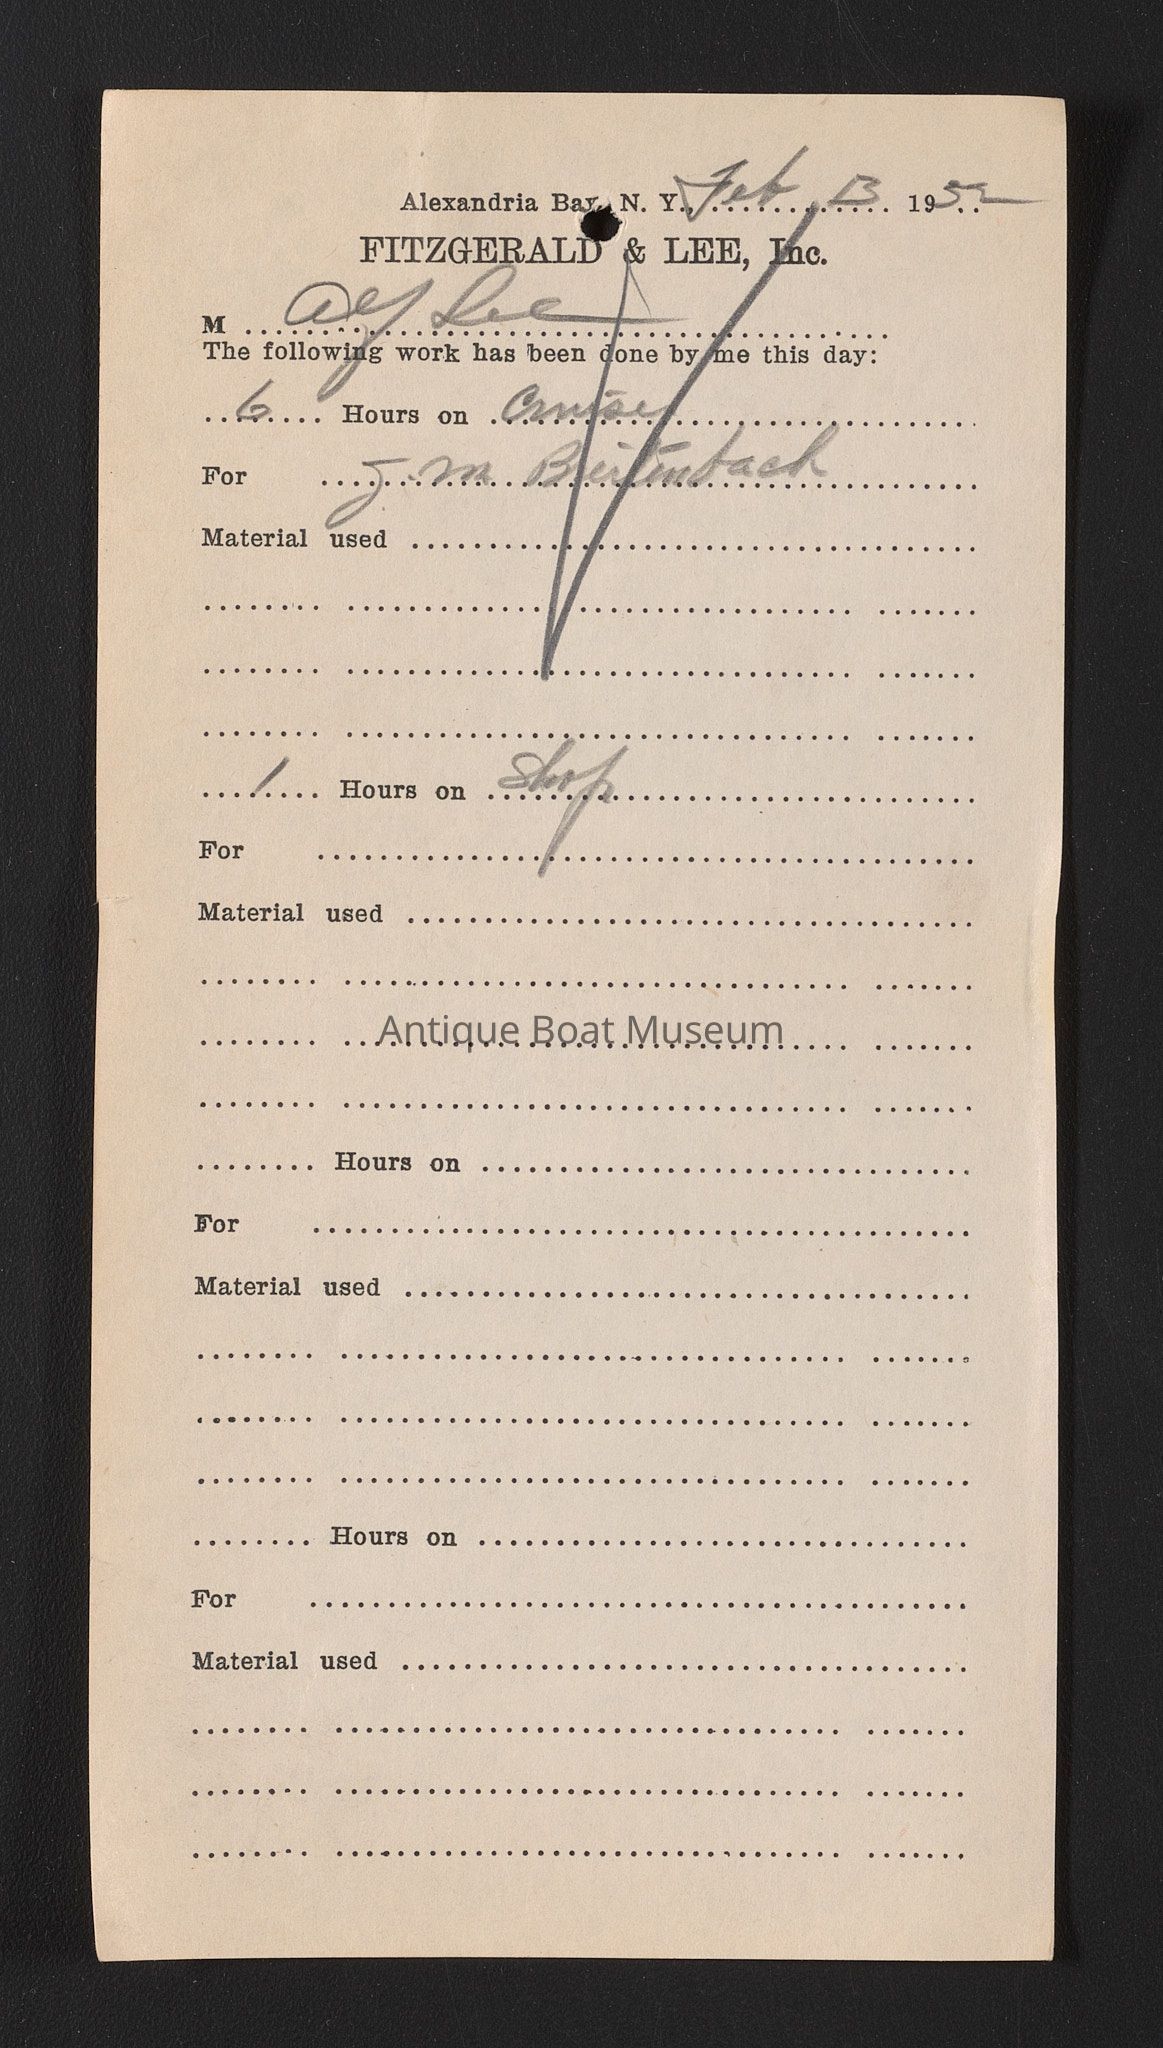 Alexandria Bay, N. Y., Feb 13 1952
FITZGERALD & LEE, Inc.
M Alf Lee
The following work has been done by me this day:
6 Hours on Cruiser
For J. M Breitenbach
Material used
1 Hours on Shop
For
Material used
Antique Boat Museum
Hours on
For
Material used
Hours on
For
Material used